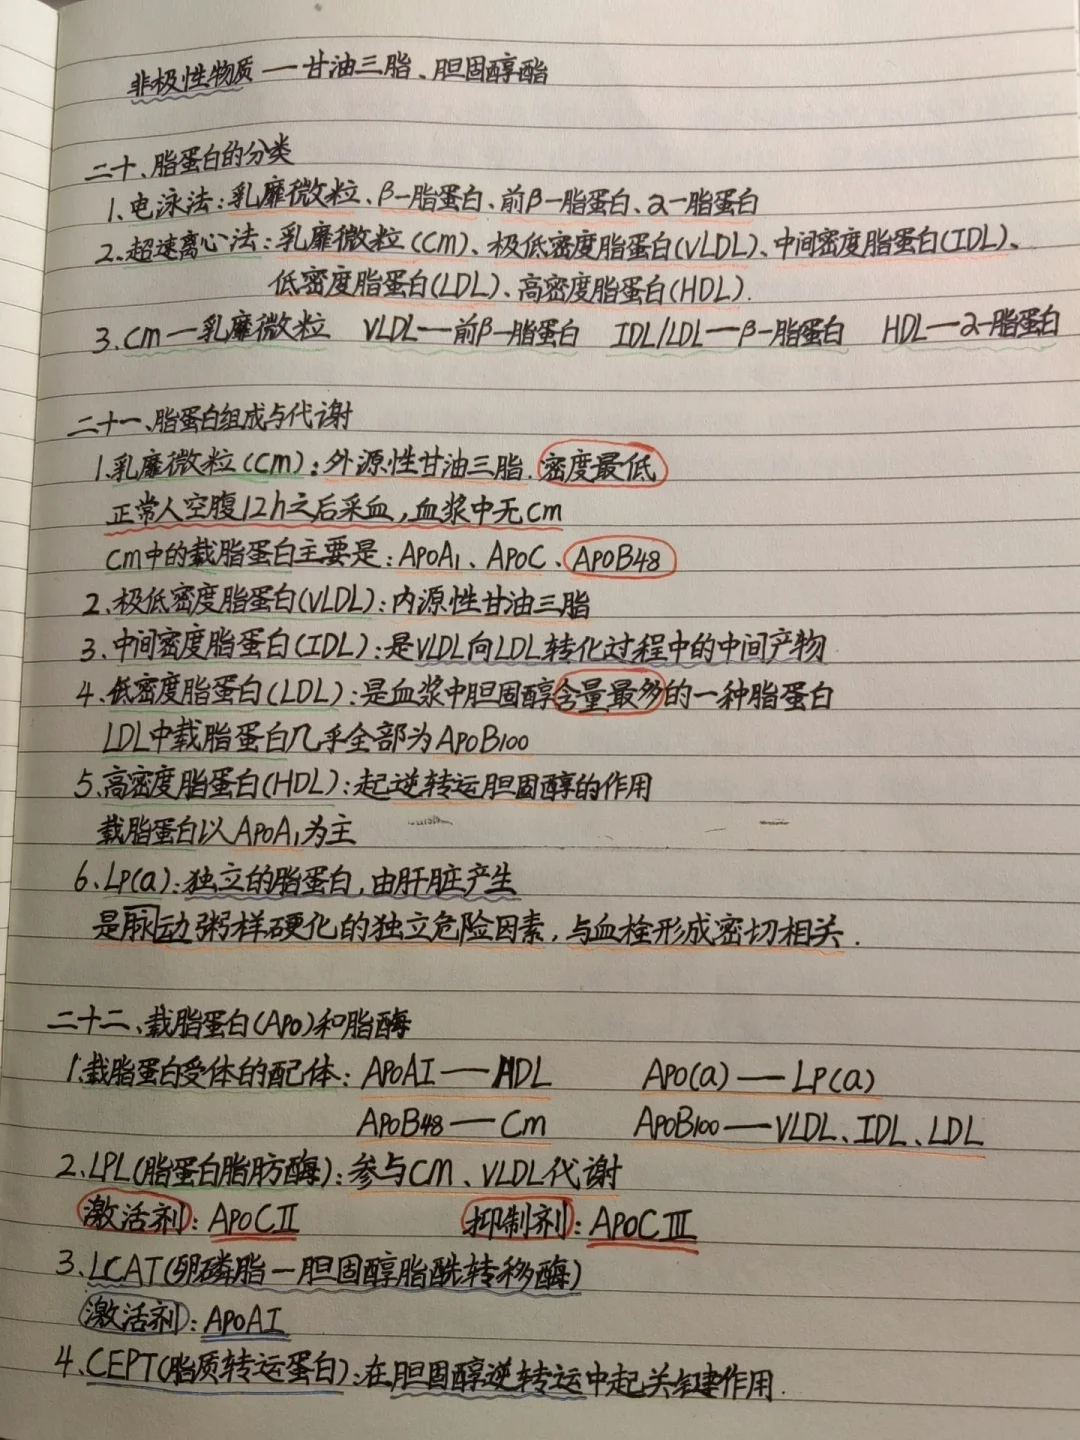 非极性物质—甘油三脂、胆固醇酯
二十、脂蛋白的分类
1、电泳法:乳糜微粒、β-脂蛋白、前β-脂蛋白、α-脂蛋白
2、超速离心法:乳糜微粒(Cm)、极低密度脂蛋白(VLDL)、中间密度脂蛋白(IDL)、
低密度脂蛋白(LDL)、高密度脂蛋白(HDL).
3.Cm—乳糜微粒 VLDL—前β-脂蛋白 IDL/LDL—β-脂蛋白 HDL—α-脂蛋白
二十一、脂蛋白组成与代谢
1.乳糜微粒(Cm):外源性甘油三脂.密度最低
正常人空腹12h之后采血,血浆中无Cm
Cm中的载脂蛋白主要是:APOA1、APOC、APOB48
2、极低密度脂蛋白(VLDL):内源性甘油三脂
3、中间密度脂蛋白(IDL):是VLDL向LDL转化过程中的中间产物
4、低密度脂蛋白(LDL):是血浆中胆固醇含量最多的一种脂蛋白
LDL中载脂蛋白几乎全部为APOB100
5、高密度脂蛋白(HDL):起逆转运胆固醇的作用
载脂蛋白以APOA1为主
6、LP(a):独立的脂蛋白,由肝脏产生
是脉动粥样硬化的独立危险因素,与血栓形成密切相关.
二十二、载脂蛋白(APO)和脂酶
1.载脂蛋白受体的配体: APOAI—HDL APO(a)—LP(a)
APOB48—Cm APOB100—VLDL、IDL、LDL
2、LPL(脂蛋白脂肪酶):参与CM、VLDL代谢
激活剂:APOCⅡ 抑制剂:APOCⅢ
3、LCAT(卵磷脂-胆固醇脂酰转移酶)
激活剂:APOAI
4、CEPT(脂质转运蛋白):在胆固醇逆转运中起关键作用.